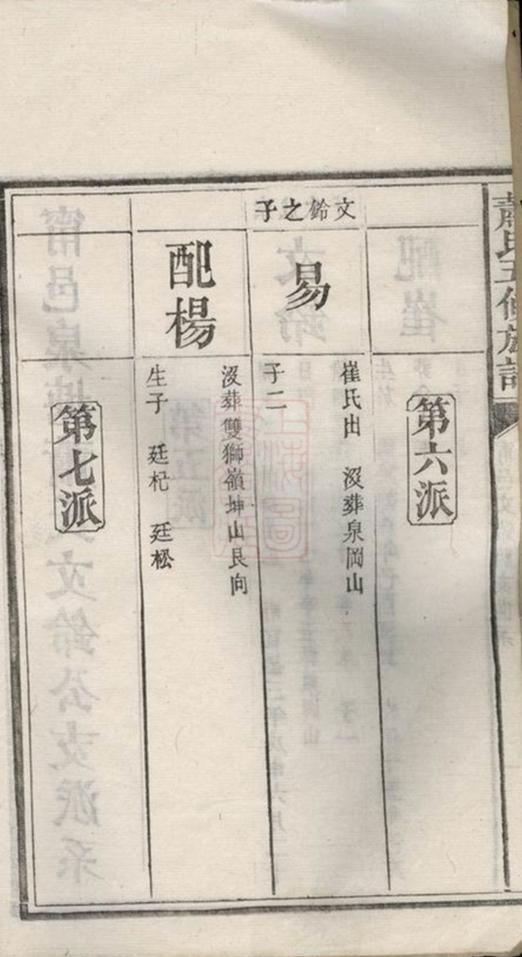 第六派
文鈴之子
易
崔氏出 沒葬泉岡山
子二
配楊
沒葬雙獅嶺坤山艮向
生子 廷杞 廷松
第七派